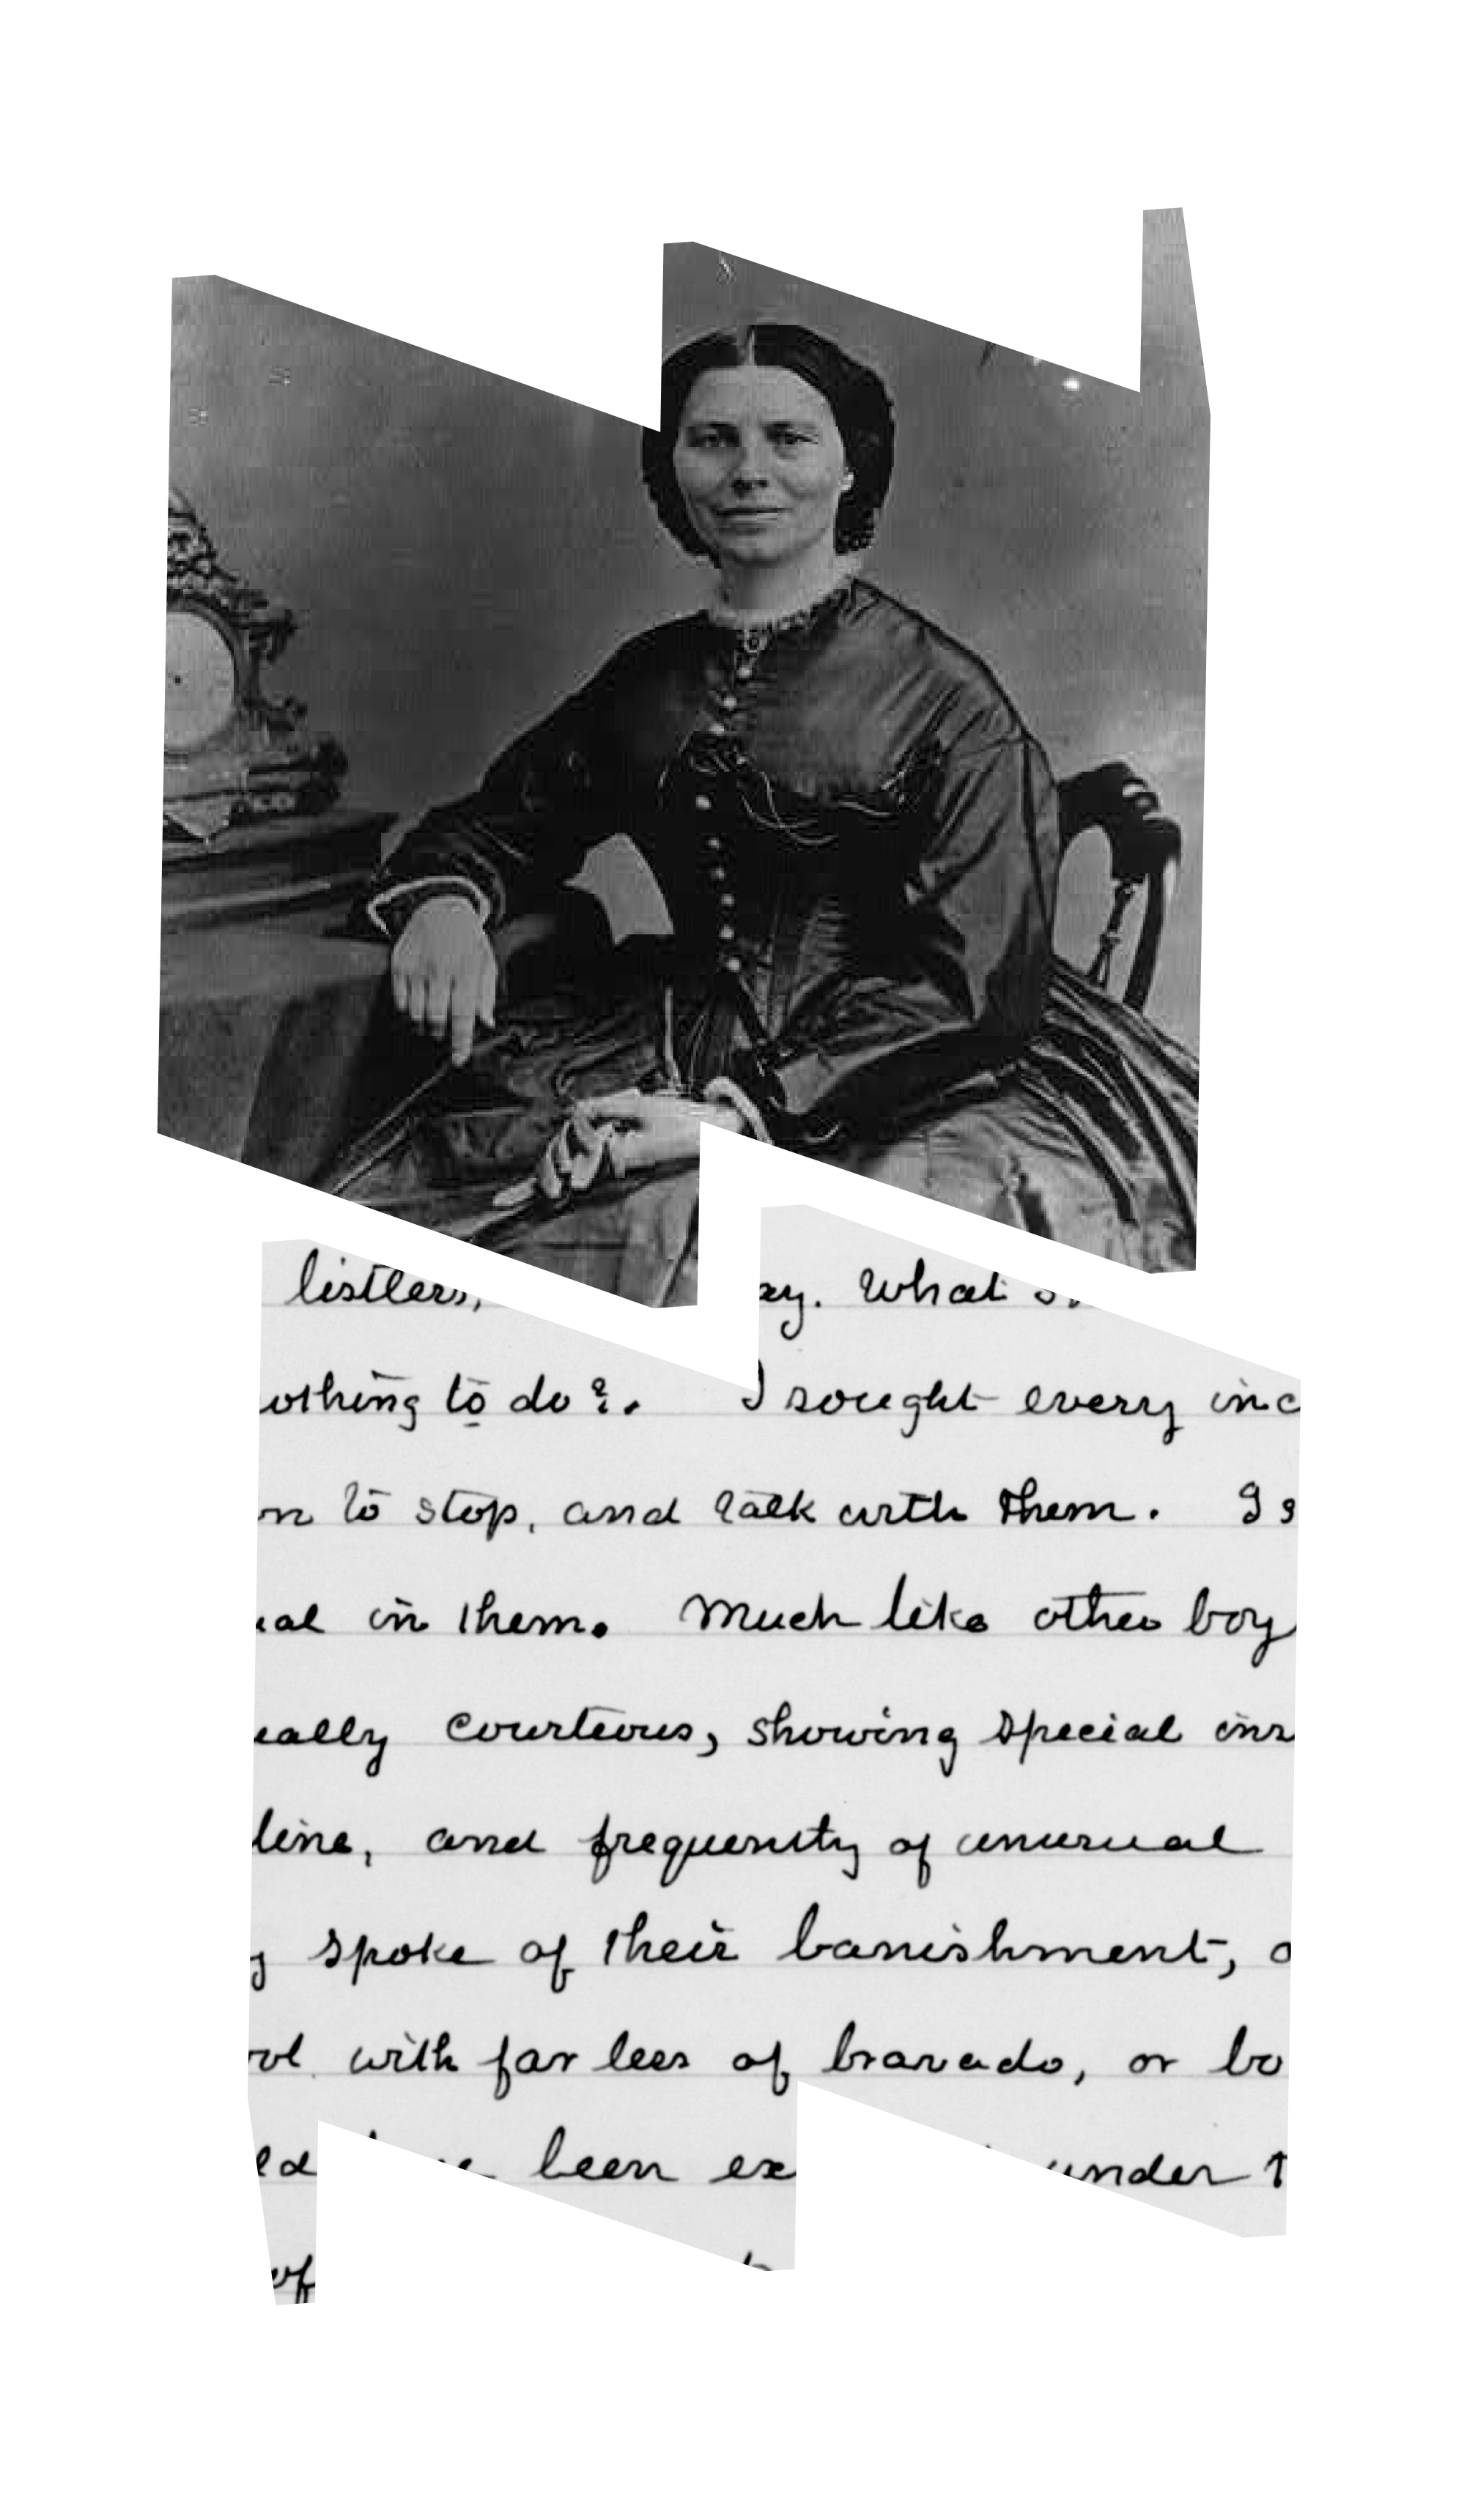 listless, ay. What
othing to do?. I sought every inc
on to stop, and talk with them. I s
ial in them. Much like other boy
ually courteous, showing special in
line, and frequently of unusual
y spoke of their banishment,
ol with far less of bravado, or bo
ld been ex under t
of